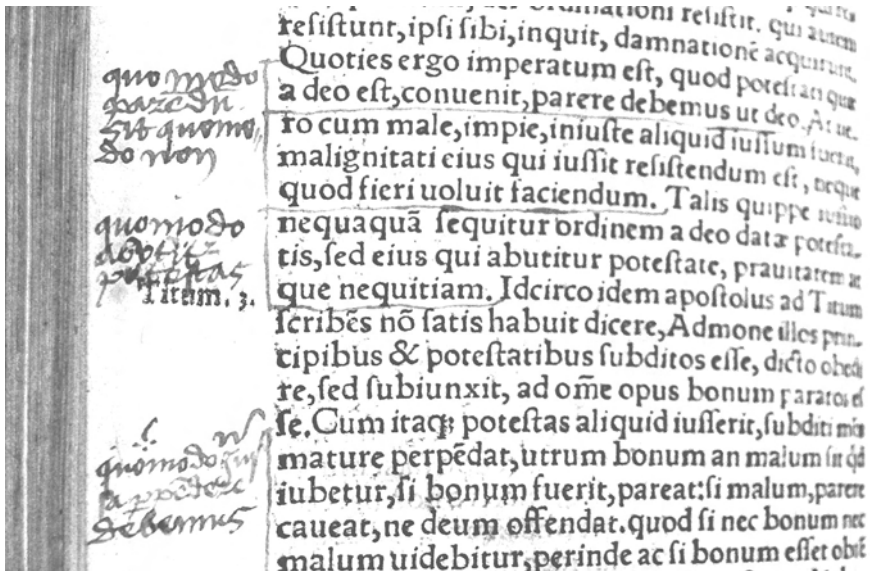 ordinationi resistit. qui autem
resiſtunt,ipſi ſibi,inquit, damnationē acquirunt.
Quoties ergo imperatum eſt, quod poteſtati quæ
a deo eſt,conuenit,parere debemus ut deo. At ue,
ro cum male,impie,iniuſte aliquid iuſſum fuerit,
malignitati eius qui iuſſit reſiſtendum eſt, neque
quod fieri uoluit faciendum. Talis quippe iuſſio
nequaquā ſequitur ordinem a deo datæ poteſta,
tis,ſed eius qui abutitur poteſtate, prauitatem at
que nequitiam. Idcirco idem apoſtolus ad Titum
ſcribēs nō ſatis habuit dicere, Admone illos prin,
cipibus & poteſtatibus ſubditos eſſe, dicto obedi
re,ſed ſubiunxit, ad om̄e opus bonum paratos eſ
ſe. Cum itaq; poteſtas aliquid iuſſerit,ſubditi
mature perpēdat,utrum bonum an malum ſit qd
iubetur,ſi bonum fuerit,pareat:ſi malum,parere
caueat,ne deum offendat.quod ſi nec bonum nec
malum uidebitur,perinde ac ſi bonum eſſet
quo modo
parēdū
sit quomo,
do non
quomodo
potestas
Titum. 3.
quomodo
debemus